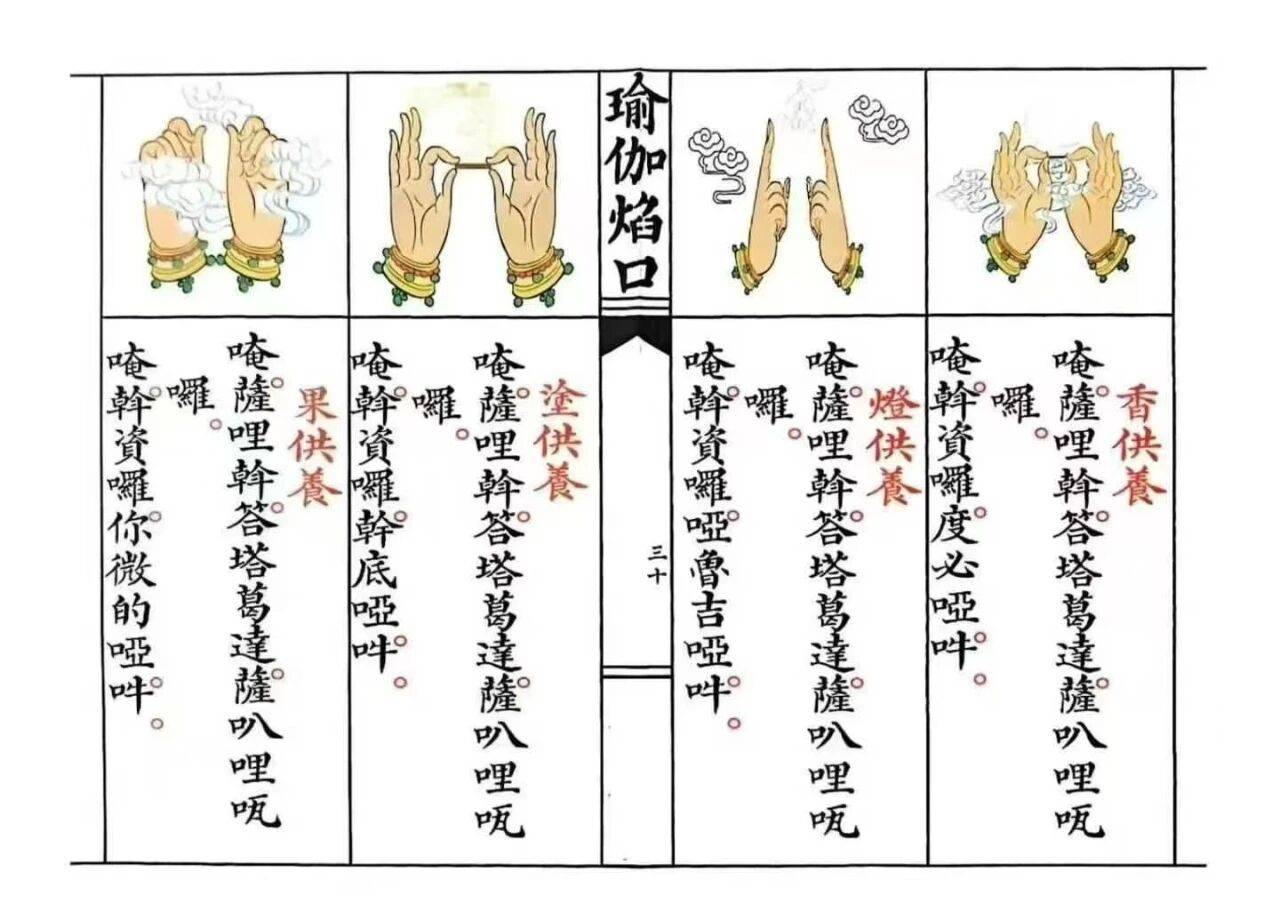 香供養
唵薩哩斡答塔葛達薩叭哩咓
囉
唵斡資囉度必啞吽
燈供養
唵薩哩斡答塔葛達薩叭哩咓
囉
唵斡資囉啞魯吉啞吽
瑜伽焰口
三十
塗供養
唵薩哩斡答塔葛達薩叭哩咓
囉
唵斡資囉幹底啞吽
果供養
唵薩哩斡答塔葛達薩叭哩咓
囉
唵斡資囉你微的啞吽